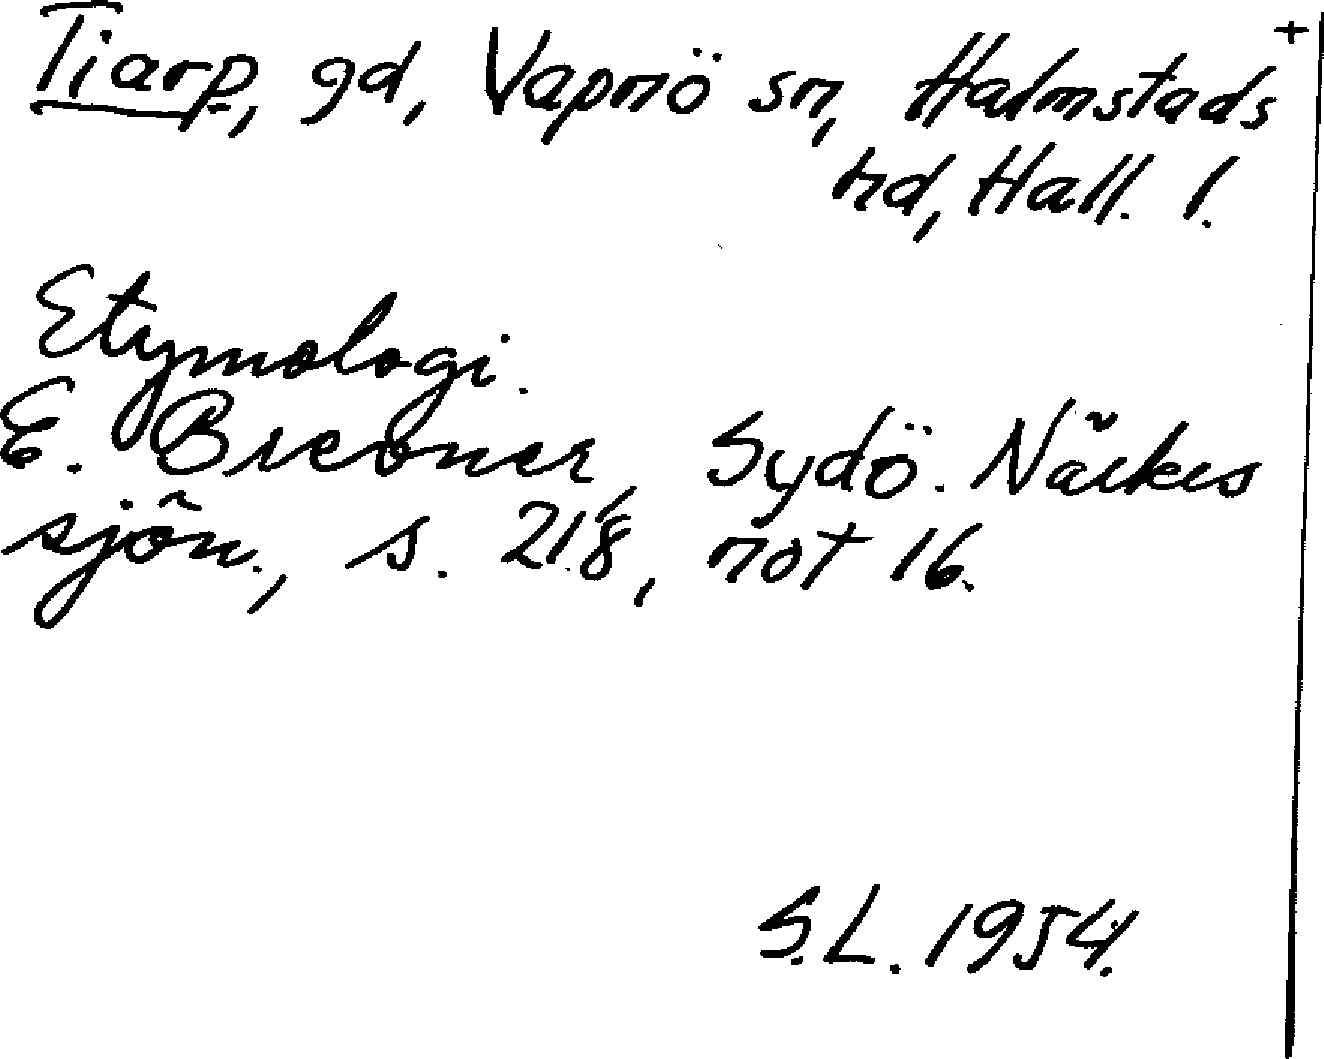 Tiarp, gd, Vapnö sn, Halmstads +
hd, Hall. l.
Etymologi.
E. Brevner, Sydö. Närkes
sjön., s. 218, not 16.
S.L. 1954.